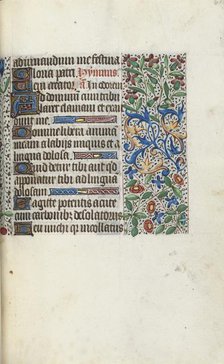 adiuuandum me festina
Gloria patri Hymnus
em creator In conu
Ad dominum cum tribu
larer clamaui et exau
diuit me
Domine libera animã
meam a labijs iniquis et a
lingua dolosa
Quid detur tibi aut qd
apponatur tibi ad lingua
dolosam
Sagitte potentis acute
cum carbonibz desolatorijs
Heu michi qr incolatus